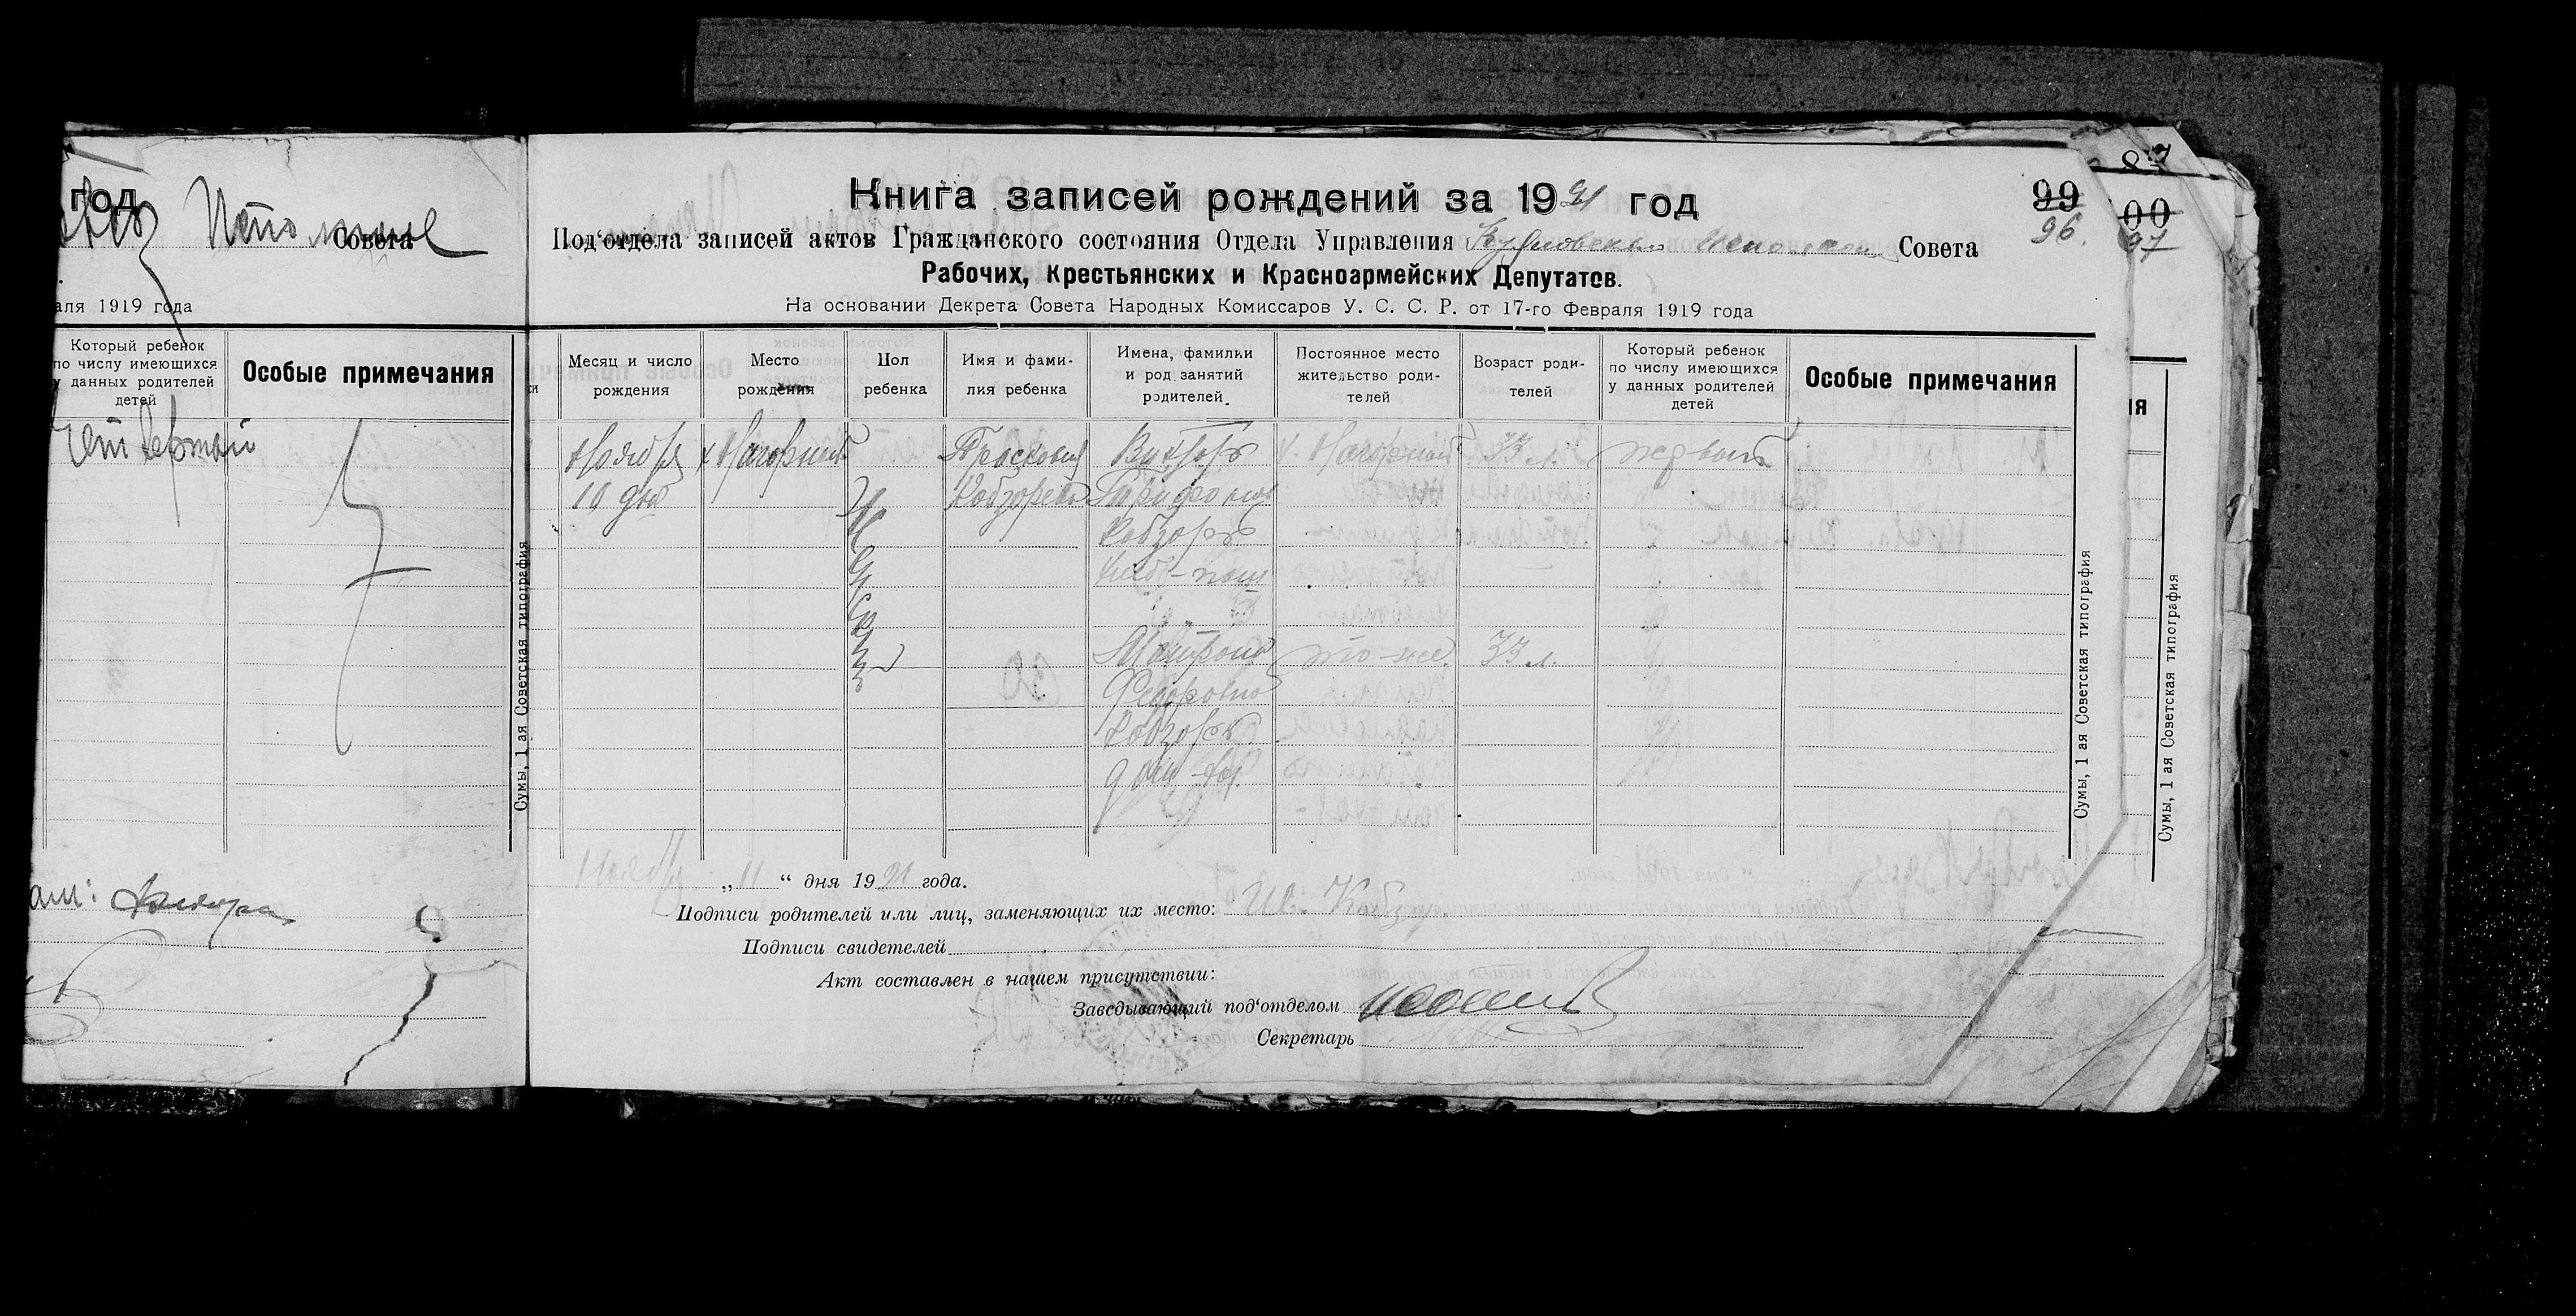 год
Совета
аля 1919 года
Который ребенок
по числу имеющихся
у данных родителей
детей
Особые примечания
Четвертый
Сумы, 1 ая Советская типография
Книга записей рождений за 1921 год
99
96.
Под'отдела записей актов Гражданского состояния Отдела Управления Совета
Рабочих, Крестьянских и Красноармейских Депутатов.
На основании Декрета Совета Народных Комиссаров У. С. С. Р. от 17-го Февраля 1919 года
Месяц и число
рождения
Место
рождения
Пол
ребенка
Имя и фами-
лия ребенка
Имена, фамилии
и род занятий
родителей.
Постоянное место
жительство роди-
телей
Возраст роди-
телей
Который ребенок
по числу имеющихся
у данных родителей
детей
Особые примечания
Ноября
10 дня
х Нагорный
Женский
Прасковия
Кобзарева
Трифонов
Кобзарь
хлеб-паш
х. Нагорный
33 л.
первый
Матрона
Федоровна
Кобзарь
дом-хоз.
то-же
33 л.
Ноября „11“ дня 1921 года.
Подписи родителей или лиц, заменяющих их место:
Подписи свидетелей
Акт составлен в нашем присутствии:
Заведывающий под'отделом
Секретарь
Сумы, 1 ая Советская типография
00
97
ия
Сумы, 1 ая Советская типография